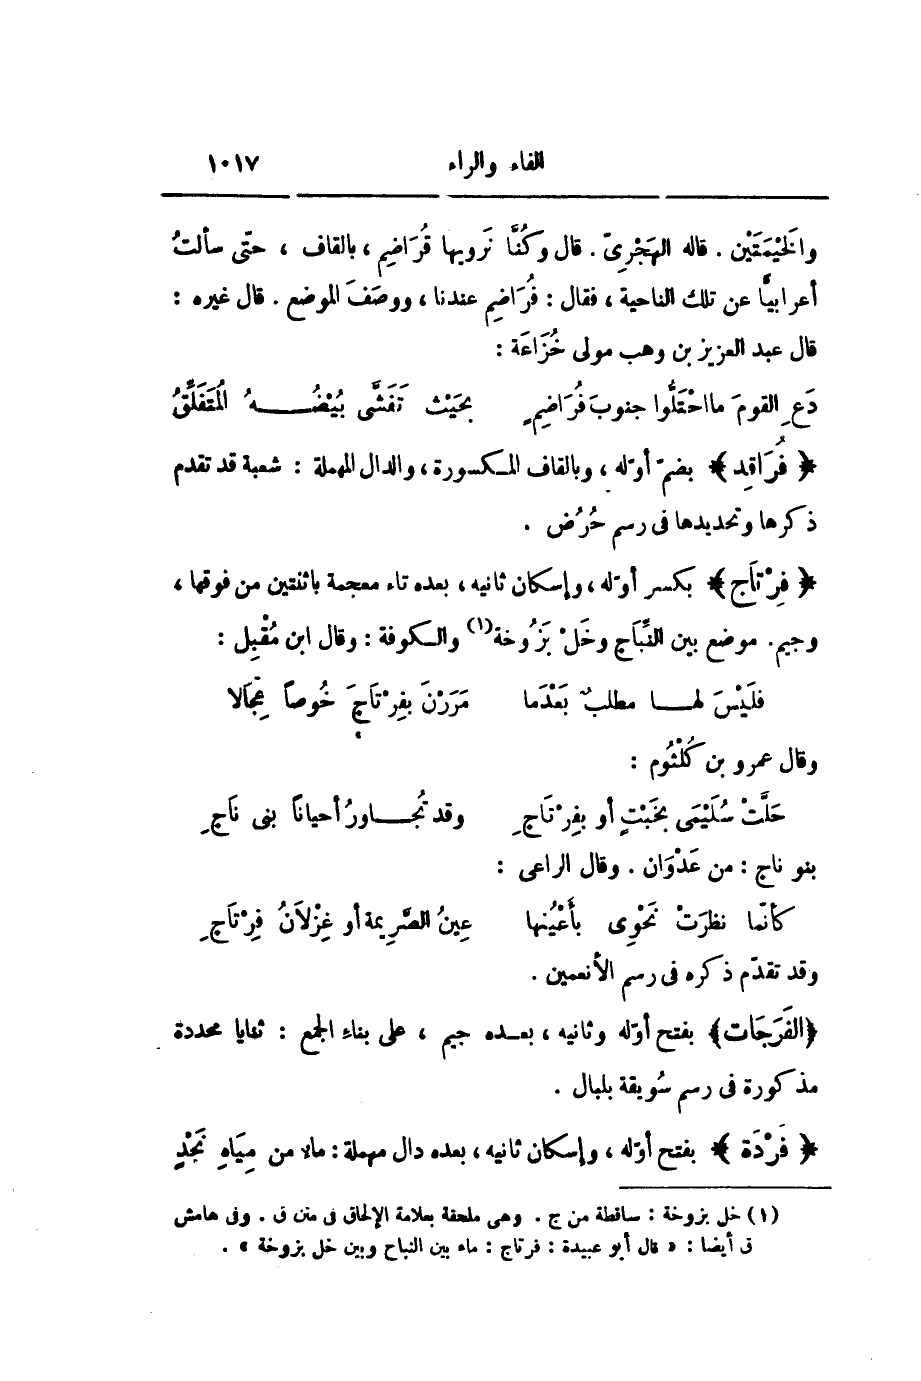 الفاء والراء ١٠١٧
والخَيْمَتَيْن . قاله الهَجْرىّ . قال وكُنَّا نَرويها قُرَاضِم ، بالقاف ، حتّى سألتُ
أعرابيًّا عن تلك الناحية ، فقال : فُرَاضِم عندنا ، ووصَفَ الموضع . قال غيره :
قال عبد العزيز بن وهب مولى خُزَاعَة :
دَعِ القومَ ما احْتَلُّوا جنوبَ فُرَاضِمٍ بحَيْث تَفَشَّى بُيْضُـــهُ المُتَفَلِّقُ
﴿ فُرَاقِد ﴾ بضمّ أوّله ، وبالقاف المـكسورة ، والدال المهملة : شعبة قد تقدم
ذكرها وتحديدها فى رسم حُرُض .
﴿ فِرْتَاج ﴾ بكسر أوّله ، وإسكان ثانيه ، بعده تاء معجمة باثنتين من فوقها ،
وجيم. موضع بين النِّبَاج وخَلّ بَزُوخة(١) والـكوفة : وقال ابن مُقْبِل :
فلَيْسَ لهــا مطلبٌ بَعْدَما مَرَرْنَ بفِرْتَاجَ خُوصًا عِجَالا
وقال عمرو بن كُلْثُوم :
حَلَّتْ سُلَيْمَى بخَبْتٍ أو بفِرْتَاجِ وقد تُجــاورُ أحيانًا بنى نَاجِ
بنو ناج : من عَدْوَان . وقال الراعى :
كأنّما نظرَتْ نَحْوِى بأَعْيُنها عِينُ الصَّرِيمة أو غِزْلَانُ فِرْتَاجِ
وقد تقدّم ذكره فى رسم الأنعمين .
﴿الفَرَجَات﴾ بفتح أوّله وثانيه ، بعـده جيم ، على بناء الجمع : ثنايا محددة
مذكورة فى رسم سُويقة بلبال .
﴿ فَرْدَة ﴾ بفتح أوّله ، وإسكان ثانيه ، بعده دال مهملة : ماء من مِيَاهِ نَجْدٍ
(١) خل بزوخة : ساقطة من ج . وهى ملحقة بعلامة الإلحاق فى متن ق . وفى هامش
ق أيضا : « قال أبو عبيدة : فرتاج : ماء بين النباح وبين خل بزوخة » .